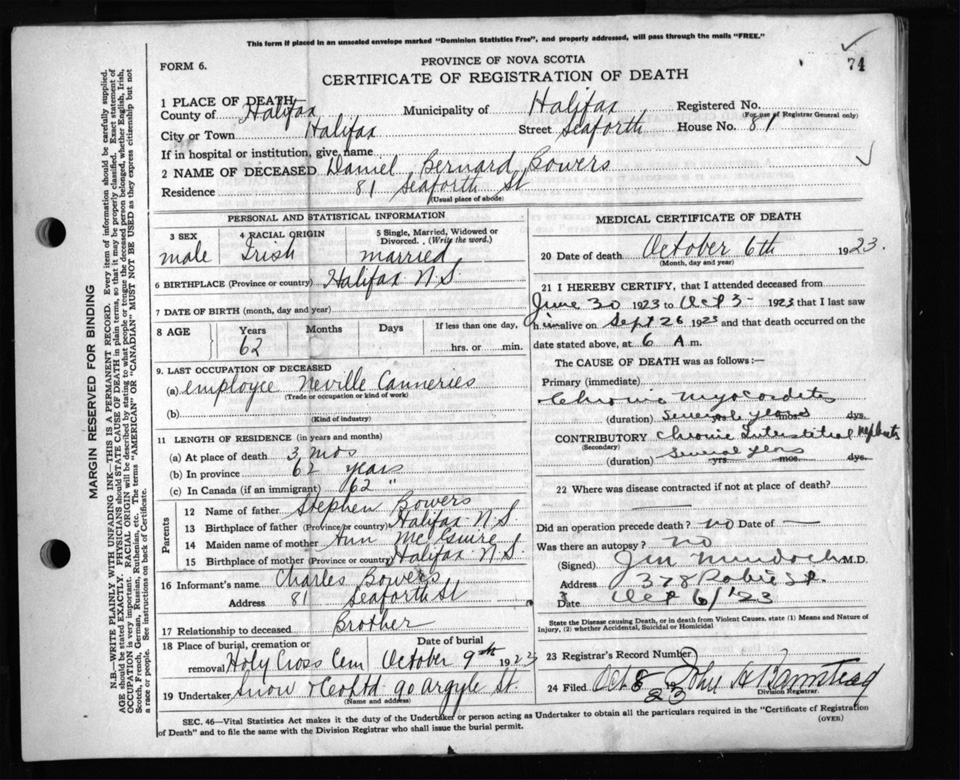 This form if placed in an unsealed envelope marked "Dominion Statistics Free", and properly addressed, will pass through the mails "FREE."
FORM 6.
PROVINCE OF NOVA SCOTIA
74
CERTIFICATE OF REGISTRATION OF DEATH
MARGIN RESERVED FOR BINDING
N.B.—WRITE PLAINLY WITH UNFADING INK—THIS IS A PERMANENT RECORD. Every item of information should be carefully supplied.
AGE should be stated EXACTLY. PHYSICIANS should STATE CAUSE OF DEATH in plain terms, so that it may be properly classified. Exact statement of
OCCUPATION is very important. RACIAL ORIGIN will be described by stating to what people or tongue the deceased person belonged, whether English, Irish,
Scotch, French, German, Russian, Ruthenian, etc. The terms "AMERICAN" OR "CANADIAN" MUST NOT BE USED as they express citizenship but not
a race or people. See instructions on back of Certificate.
1 PLACE OF DEATH
County of Halifax Municipality of Halifax Registered No.
(For use of Registrar General only)
City or Town Halifax Street Seaforth House No. 81
If in hospital or institution, give name
2 NAME OF DECEASED Daniel Bernard Bowers
Residence 81 Seaforth St
(Usual place of abode)
PERSONAL AND STATISTICAL INFORMATION
3 SEX 4 RACIAL ORIGIN 5 Single, Married, Widowed or
Divorced. (Write the word.)
male Irish married
6 BIRTHPLACE (Province or country) Halifax N.S
7 DATE OF BIRTH (month, day and year)
8 AGE Years Months Days If less than one day,
62 hrs. or min.
9. LAST OCCUPATION OF DECEASED
(a) employee Neville Canneries
(Trade or occupation or kind of work)
(b)
(Kind of industry)
11 LENGTH OF RESIDENCE (in years and months)
(a) At place of death 3 mos
(b) In province 62 years
(c) In Canada (if an immigrant) 62 "
Parents
12 Name of father Stephen Bowers
13 Birthplace of father (Province or country) Halifax N.S.
14 Maiden name of mother Ann McGuire
15 Birthplace of mother (Province or country) Halifax N.S.
16 Informant's name Charles Bowers
Address 81 Seaforth St
17 Relationship to deceased Brother
18 Place of burial, cremation or Date of burial
removal Holy Cross Cem October 9th 1923
19 Undertaker Snow & Co Ltd 90 Argyle St.
(Name and address)
MEDICAL CERTIFICATE OF DEATH
20 Date of death October 6th 1923.
(Month, day and year)
21 I HEREBY CERTIFY, that I attended deceased from
June 30 1923 to Oct 5 1923 that I last saw
him alive on Sept 26 1923 and that death occurred on the
date stated above, at 6 A m.
The CAUSE OF DEATH was as follows:—
Primary (immediate)
Chronic Myocarditis
(duration) Several years mos. dys.
CONTRIBUTORY Chronic Interstitial Nephritis
(Secondary)
(duration) Several years yrs. mos. dys.
22 Where was disease contracted if not at place of death?
Did an operation precede death? no Date of —
Was there an autopsy? no
(Signed) Jm Murdoch M.D.
Address 378 Robie St.
Date Oct 6/'23
State the Disease causing Death, or in Death from Violent Causes, state (1) Means and Nature of
Injury, (2) whether Accidental, Suicidal or Homicidal
23 Registrar's Record Number
24 Filed Oct 8 1923 John A Barnstead
Division Registrar.
SEC. 46—Vital Statistics Act makes it the duty of the Undertaker or person acting as Undertaker to obtain all the particulars required in the "Certificate of Registration
of Death" and to file the same with the Division Registrar who shall issue the burial permit.
(OVER)